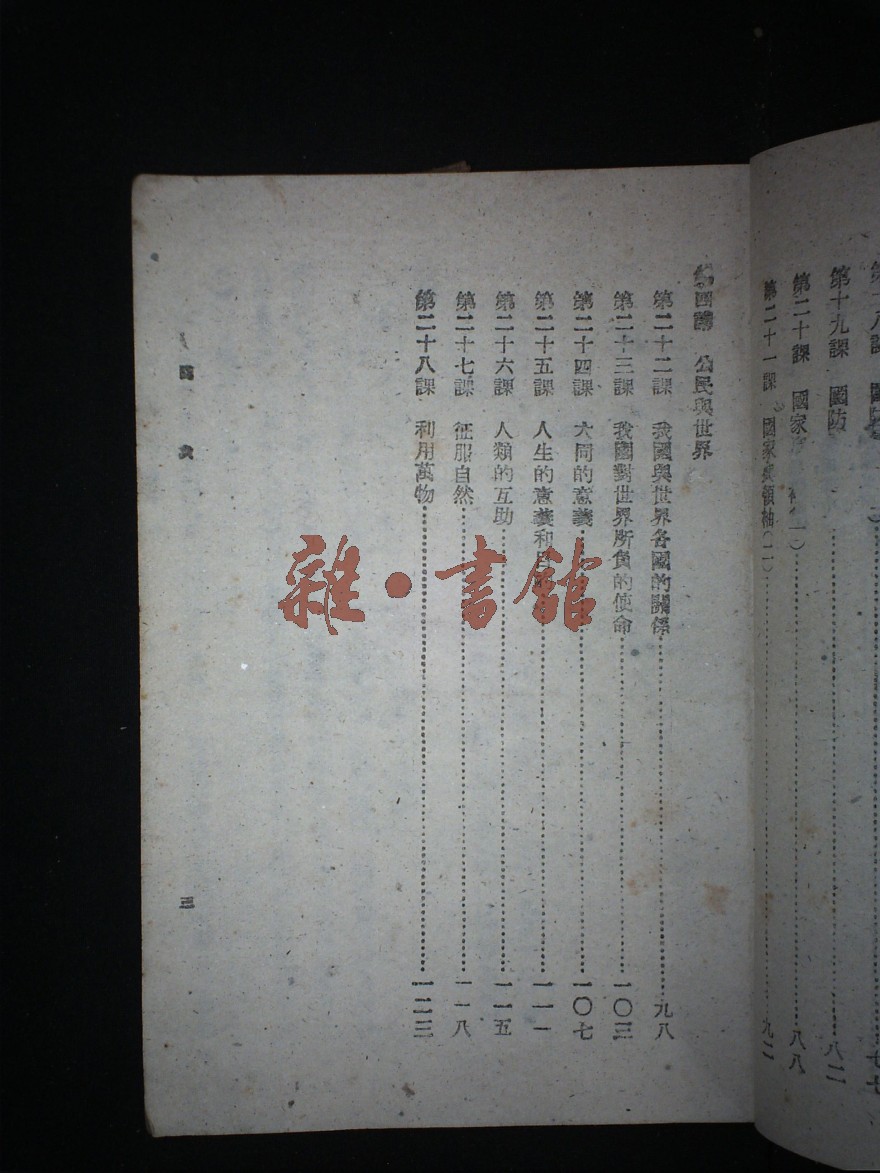 第十八課
第十九課 國防 八二
第二十課 國家 八八
第二十一課 國家與領袖(二) 九二
第四講 公民與世界
第二十二課 我國與世界各國的關係 九八
第二十三課 我國對世界所負的使命 一〇三
第二十四課 大同的意義 一〇七
第二十五課 人生的意義和目 一一一
第二十六課 人類的互助 一一五
第二十七課 征服自然 一一八
第二十八課 利用萬物 一二三
三
雜·書館